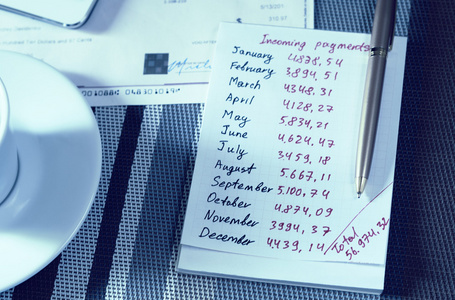 Incoming payments
January 4878,54
February 3894,51
March 4348.31
April 4128,27
May 5.834,21
June 4.624,47
July 3459,18
August 5.667,11
September 5.100,74
October 4.874,09
November 3994,37
December 4439,14
Total
56.974,32